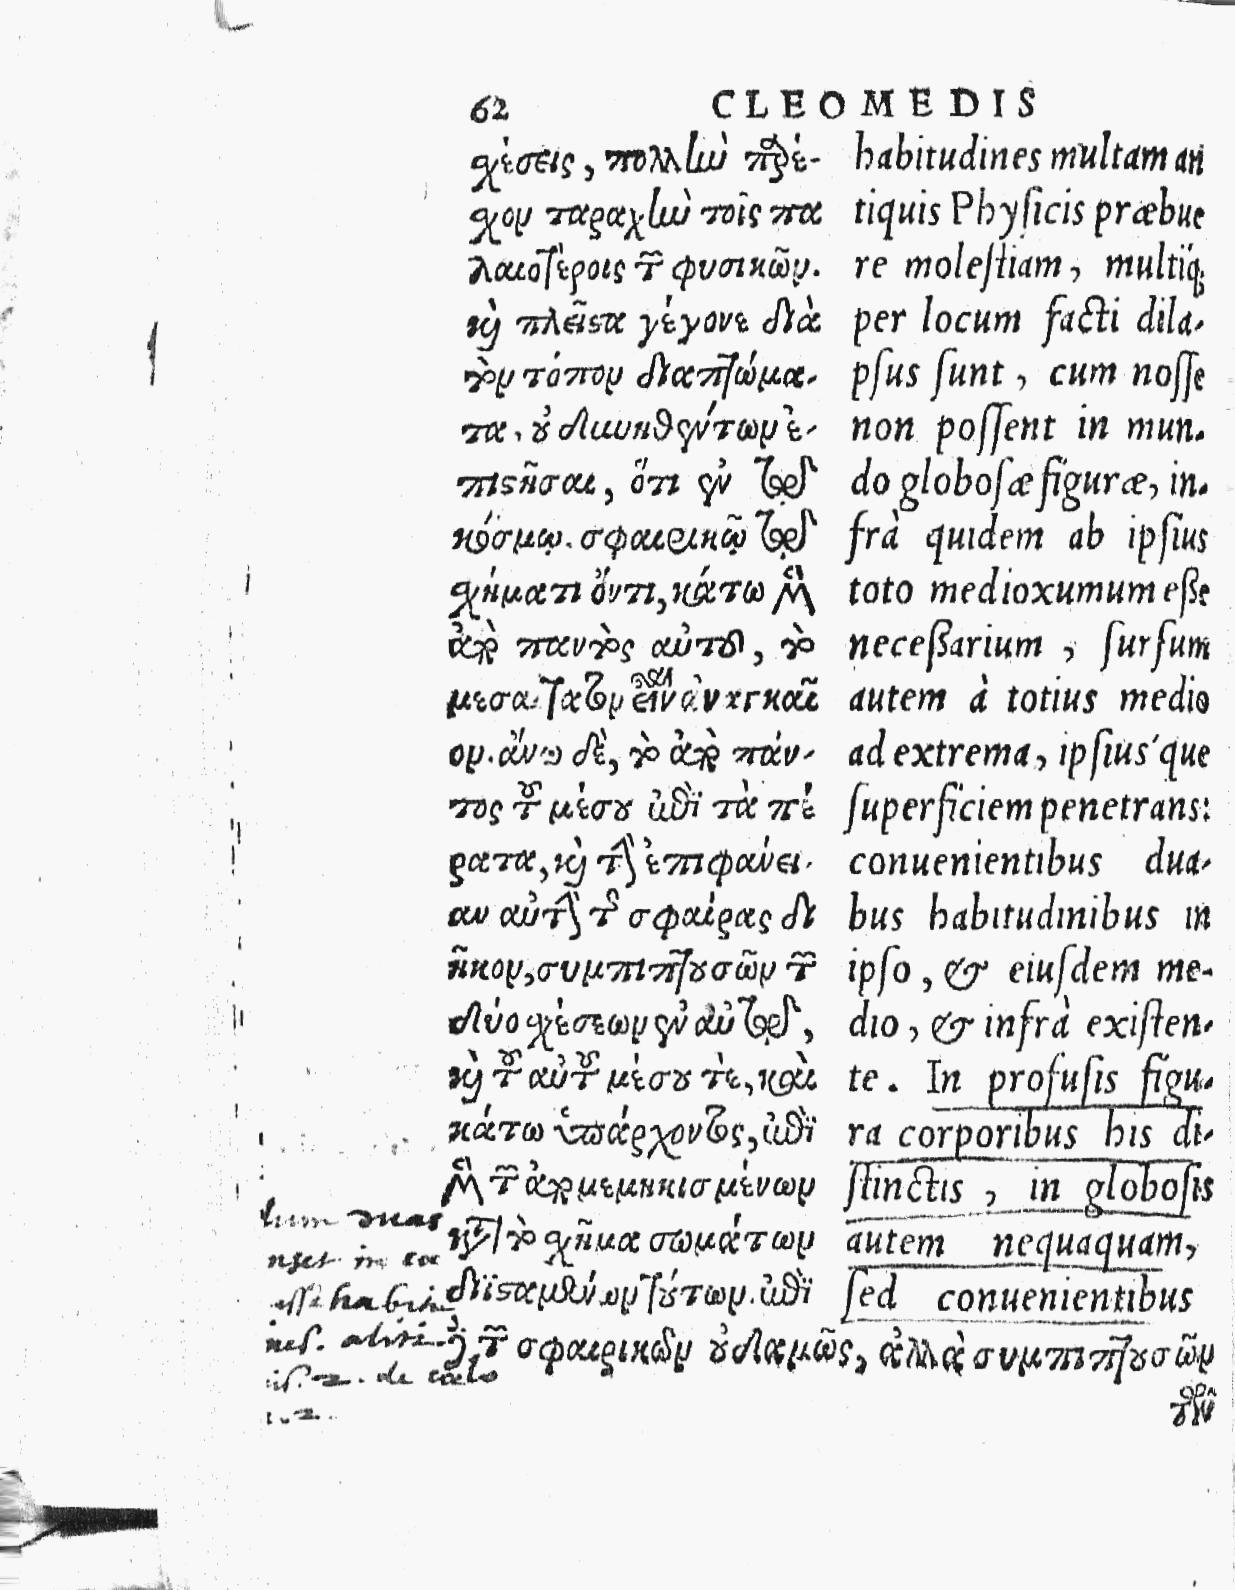 62 CLEOMEDIS
χέσεις, πολλὴν παρέ-
χον ταραχὴν τοῖς πα
λαιοτέροις τῶν φυσικῶν.
καὶ πλεῖστα γέγονε διὰ
τὸν τόπον διαπτώμα-
τα, οὐ δυνηθέντων ἐ-
πιστῆσαι, ὅτι ἐν τῷ
κόσμῳ σφαιρικῷ τῷ
χήματι ὄντι, κάτω μὲν
ἀπὸ παντὸς αὐτοῦ, τὸ
μεσαίτατον εἶναι ἀναγκαῖ
ον. ἄνω δὲ, τὸ ἀπὸ πάν-
τος τοῦ μέσου ἐπὶ τὰ πέ
ρατα, καὶ τὴν ἐπιφάνει-
αν αὐτὴν τῆς σφαίρας δι
ῆκον, συμπιπτουσῶν τῶν
δύο χέσεων ἐν αὐτῷ,
καὶ τοῦ αὐτοῦ μέσου τὲ, καὶ
κάτω ὑπάρχοντος, ἐπὶ
μὲν τῶν ἀπομεμηκισμένων
κατὰ τὸ χῆμα σωμάτων
διϊσταμένων τούτων. ἐπὶ
δὲ τῶν σφαιρικῶν οὐδαμῶς, ἀλλὰ συμπιπτουσῶν
habitudines multam an
tiquis Phyſicis præbue
re moleſtiam, multiq;
per locum facti dila-
pſus ſunt, cum noſſe
non poſſent in mun-
do globoſæ figuræ, in-
frà quidem ab ipſius
toto medioxumum eße
neceßarium, ſurſum
autem à totius medio
ad extrema, ipſius'que
ſuperficiem penetrans:
conuenientibus dua-
bus habitudinibus in
ipſo, & eiuſdem me-
dio, & infrà exiſten-
te. In profuſis figu-
ra corporibus his di-
ſtinctis, in globoſis
autem nequaquam,
ſed conuenientibus
habitu
de cœlo